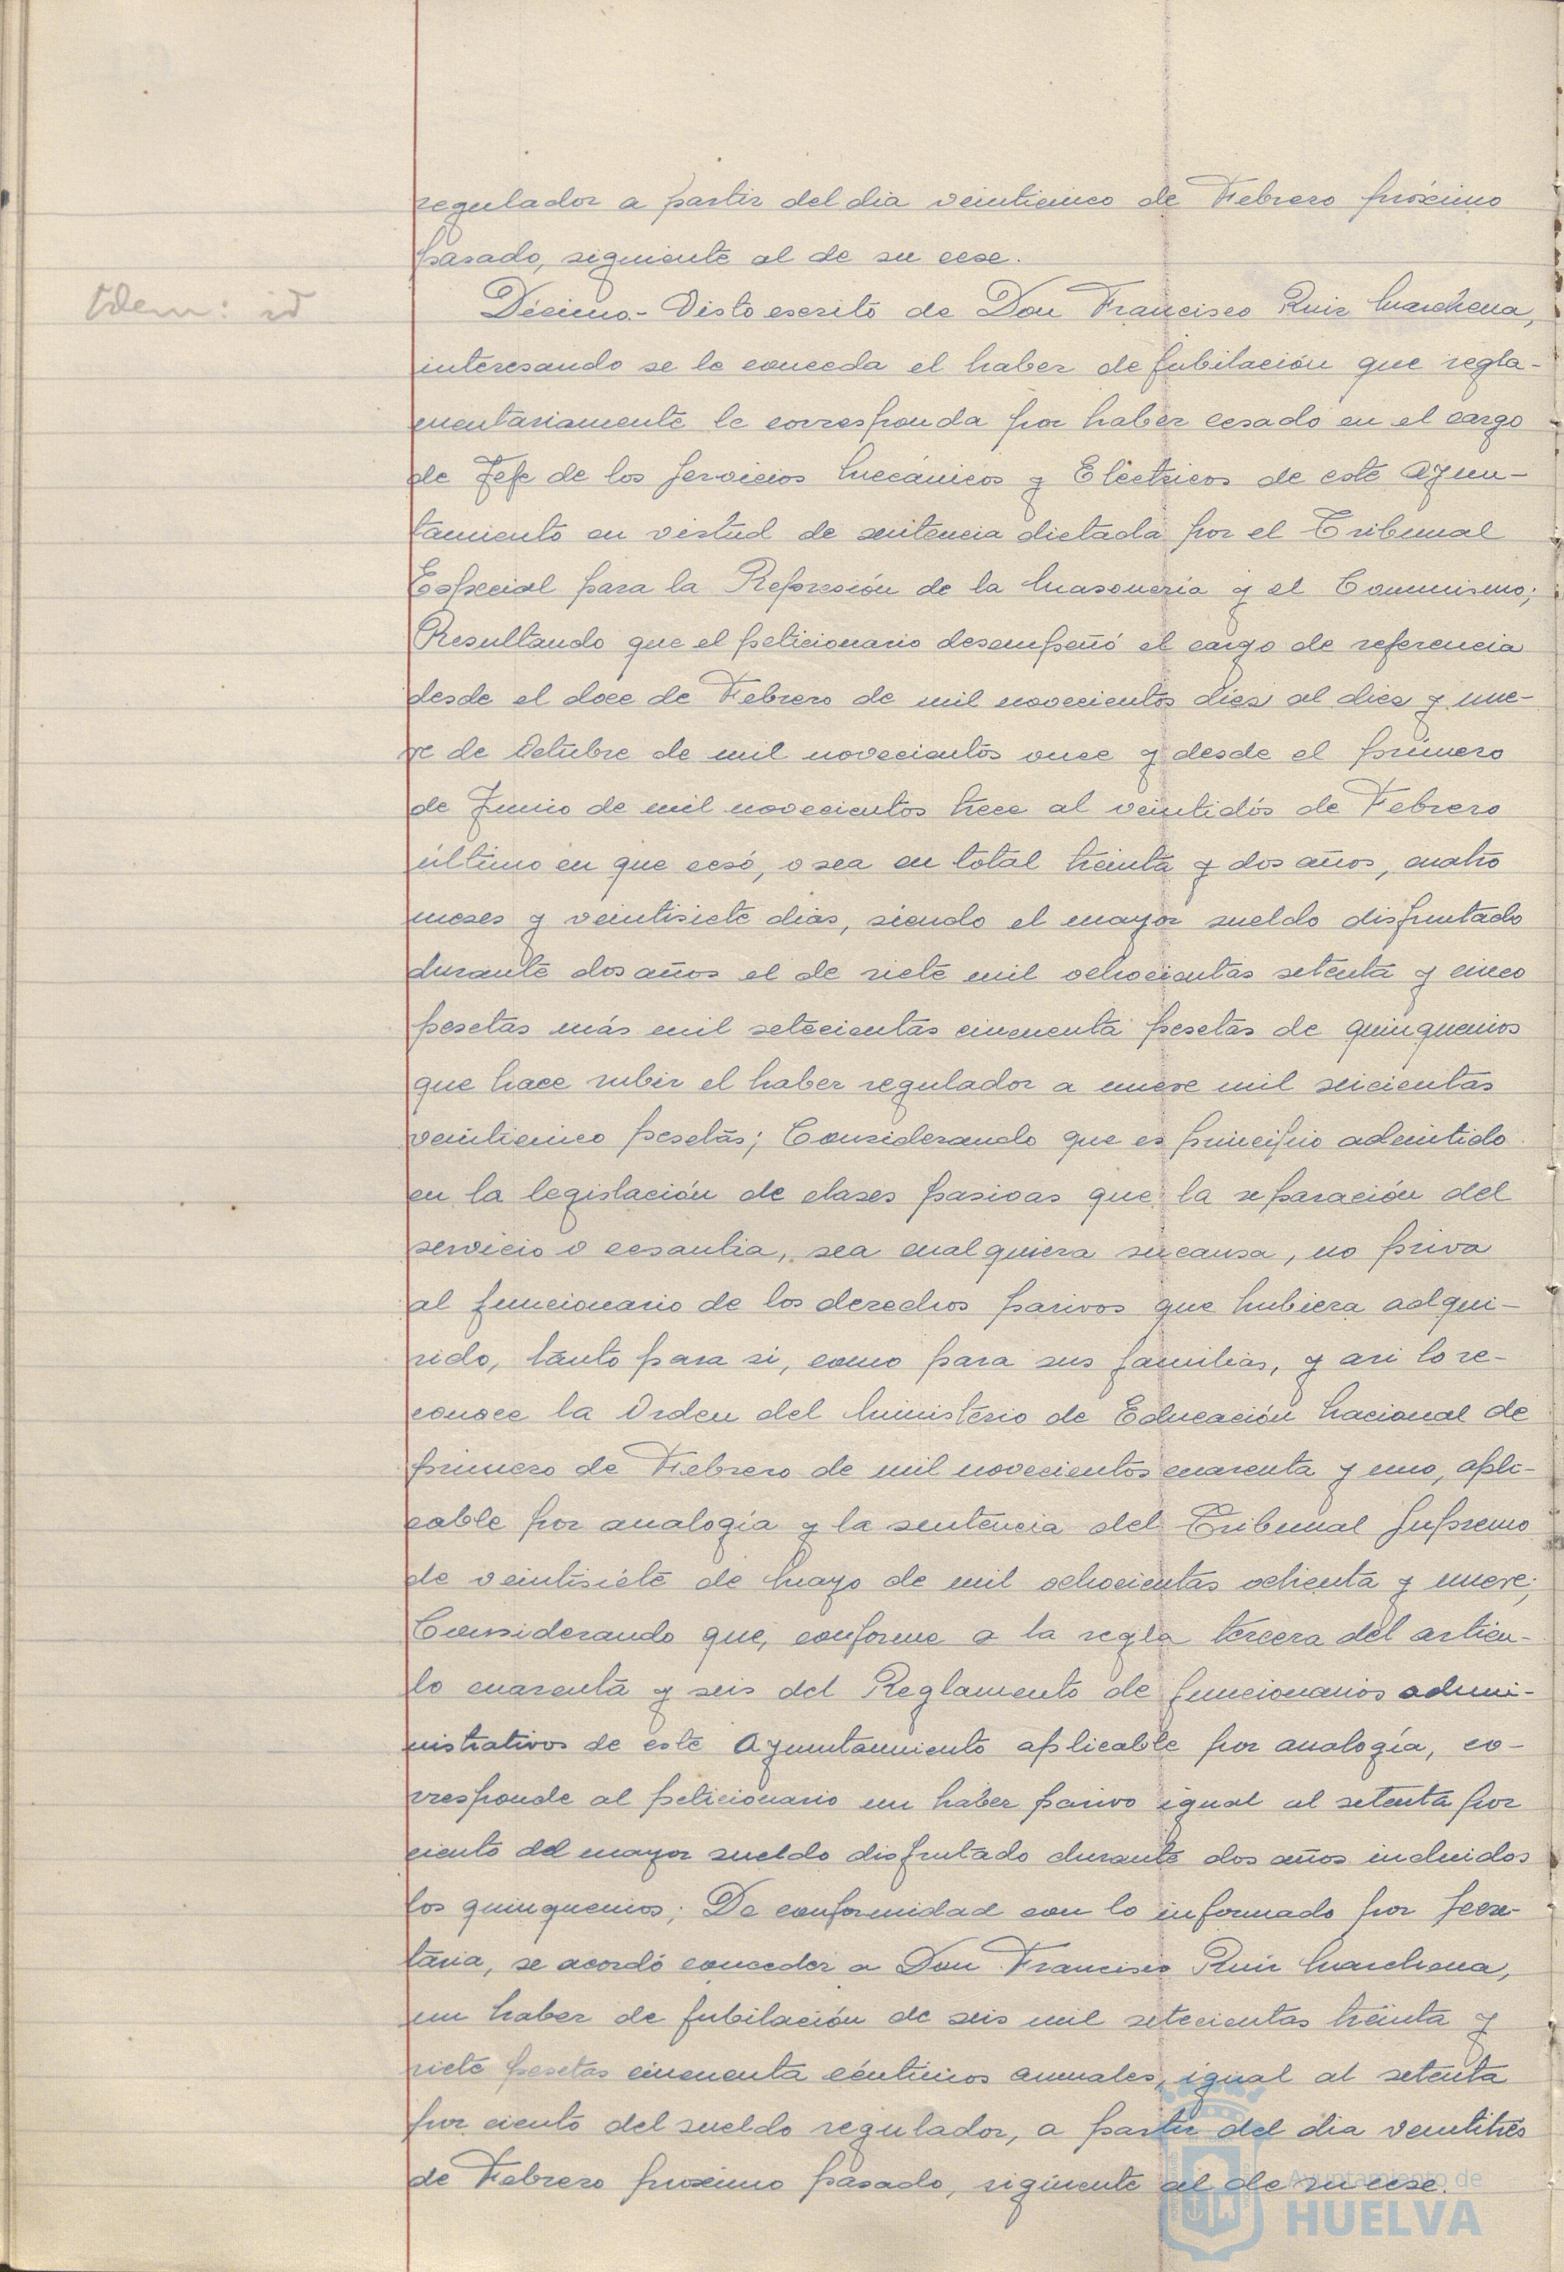 regulador a partir del dia veinticinco de Febrero próximo
pasado, siguiente al de su cese.
Idem: id
Décimo.- Visto escrito de Don Francisco Ruiz Marchena,
interesando se le conceda el haber de jubilación que regla-
mentariamente le corresponda por haber cesado en el cargo
de Jefe de los Servicios Mecánicos y Eléctricos de este Ayun-
tamiento en virtud de sentencia dictada por el Tribunal
Especial para la Represión de la Masonería y el Comunismo;
Resultando que el peticionario desempeñó el cargo de referencia
desde el doce de Febrero de mil novecientos diez al diez y nue-
ve de Octubre de mil novecientos once y desde el primero
de Junio de mil novecientos trece al veintidós de Febrero
último en que cesó, o sea en total treinta y dos años, cuatro
meses y veintisiete dias, siendo el mayor sueldo disfrutado
durante dos años el de siete mil ochocientas setenta y cinco
pesetas más mil setecientas cincuenta pesetas de quinquenios
que hace subir el haber regulador a nueve mil seicientas
veinticinco pesetas; Considerando que es principio admitido
en la legislación de clases pasivas que la separación del
servicio o cesantia, sea cualquiera su causa, no priva
al funcionario de los derechos pasivos que hubiera adqui-
rido, tanto para si, como para sus familias, y asi lo re-
conoce la Orden del Ministerio de Educación Nacional de
primero de Febrero de mil novecientos cuarenta y uno, apli-
cable por analogía y la sentencia del Tribunal Supremo
de veintisiete de Mayo de mil ochocientas ochenta y nueve;
Considerando que, conforme a la regla tercera del articu-
lo cuarenta y seis del Reglamento de funcionarios admi-
nistrativos de este Ayuntamiento aplicable por analogía, co-
rresponde al peticionario un haber pasivo igual al setenta por
ciento del mayor sueldo disfrutado durante dos años incluidos
los quinquenios; De conformidad con lo informado por Secre-
taria, se acordó conceder a Don Francisco Ruiz Marchena,
un haber de jubilación de seis mil setecientas treinta y
siete pesetas cincuenta céntimos anuales, igual al setenta
por ciento del sueldo regulador, a partir del dia veintitrés
de Febrero proximo pasado, siguiente al de su cese.
Ayuntamiento de
HUELVA